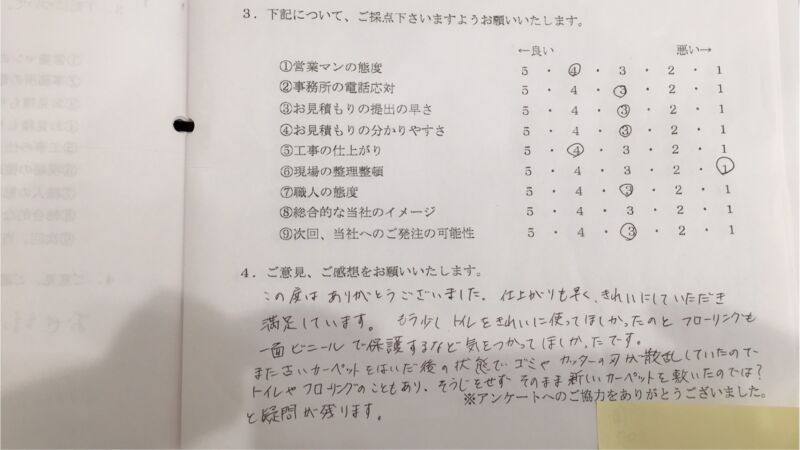 3．下記について、ご採点下さいますようお願いいたします。
←良い 悪い→
①営業マンの態度 5 ・ 4 ・ 3 ・ 2 ・ 1
②事務所の電話応対 5 ・ 4 ・ 3 ・ 2 ・ 1
③お見積もりの提出の早さ 5 ・ 4 ・ 3 ・ 2 ・ 1
④お見積もりの分かりやすさ 5 ・ 4 ・ 3 ・ 2 ・ 1
⑤工事の仕上がり 5 ・ 4 ・ 3 ・ 2 ・ 1
⑥現場の整理整頓 5 ・ 4 ・ 3 ・ 2 ・ 1
⑦職人の態度 5 ・ 4 ・ 3 ・ 2 ・ 1
⑧総合的な当社のイメージ 5 ・ 4 ・ 3 ・ 2 ・ 1
⑨次回、当社へのご発注の可能性 5 ・ 4 ・ 3 ・ 2 ・ 1
4．ご意見、ご感想をお願いいたします。
この度はありがとうございました。仕上がりも早く、きれいにしていただき
満足しています。もう少しトイレをきれいに使ってほしかったのとフローリングも
一面ビニールで保護するなど気をつかってほしかったです。
また古いカーペットをはいだ後の状態でゴミやカッターの刃が散乱していたので、
トイレやフローリングのこともあり、そうじをせずそのまま新しいカーペットを敷いたのでは？
※アンケートへのご協力をありがとうございました。
と疑問が残ります。